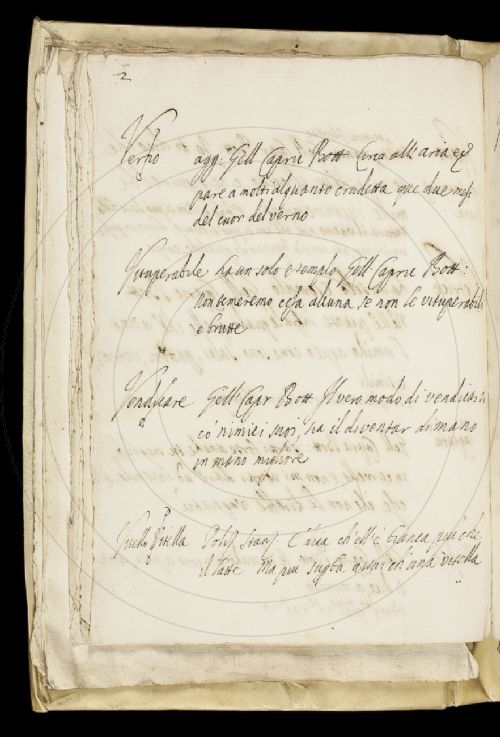 2
Verno agg: Gell Capric Bott Circa all'aria
pare a molti alquanto crudetta que due mesi
del cuor del verno
Vituperabile ha un solo esempio Gell Capric Bott:
Non temeremo cosa alcuna se non le vituperabili
e brutte
Vendicare Gell Capr Bott Il vero modo di vendicarsi
có nimici suoi, ha il diventar di mano
in mano migliore
Vitella Poliz stanz ch'ell'è bianca più che
il latte Ma più assai ch'una vitella